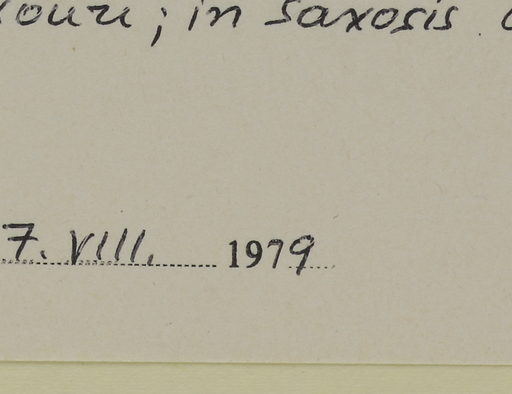 ; in saxosis
7. VIII. 1979